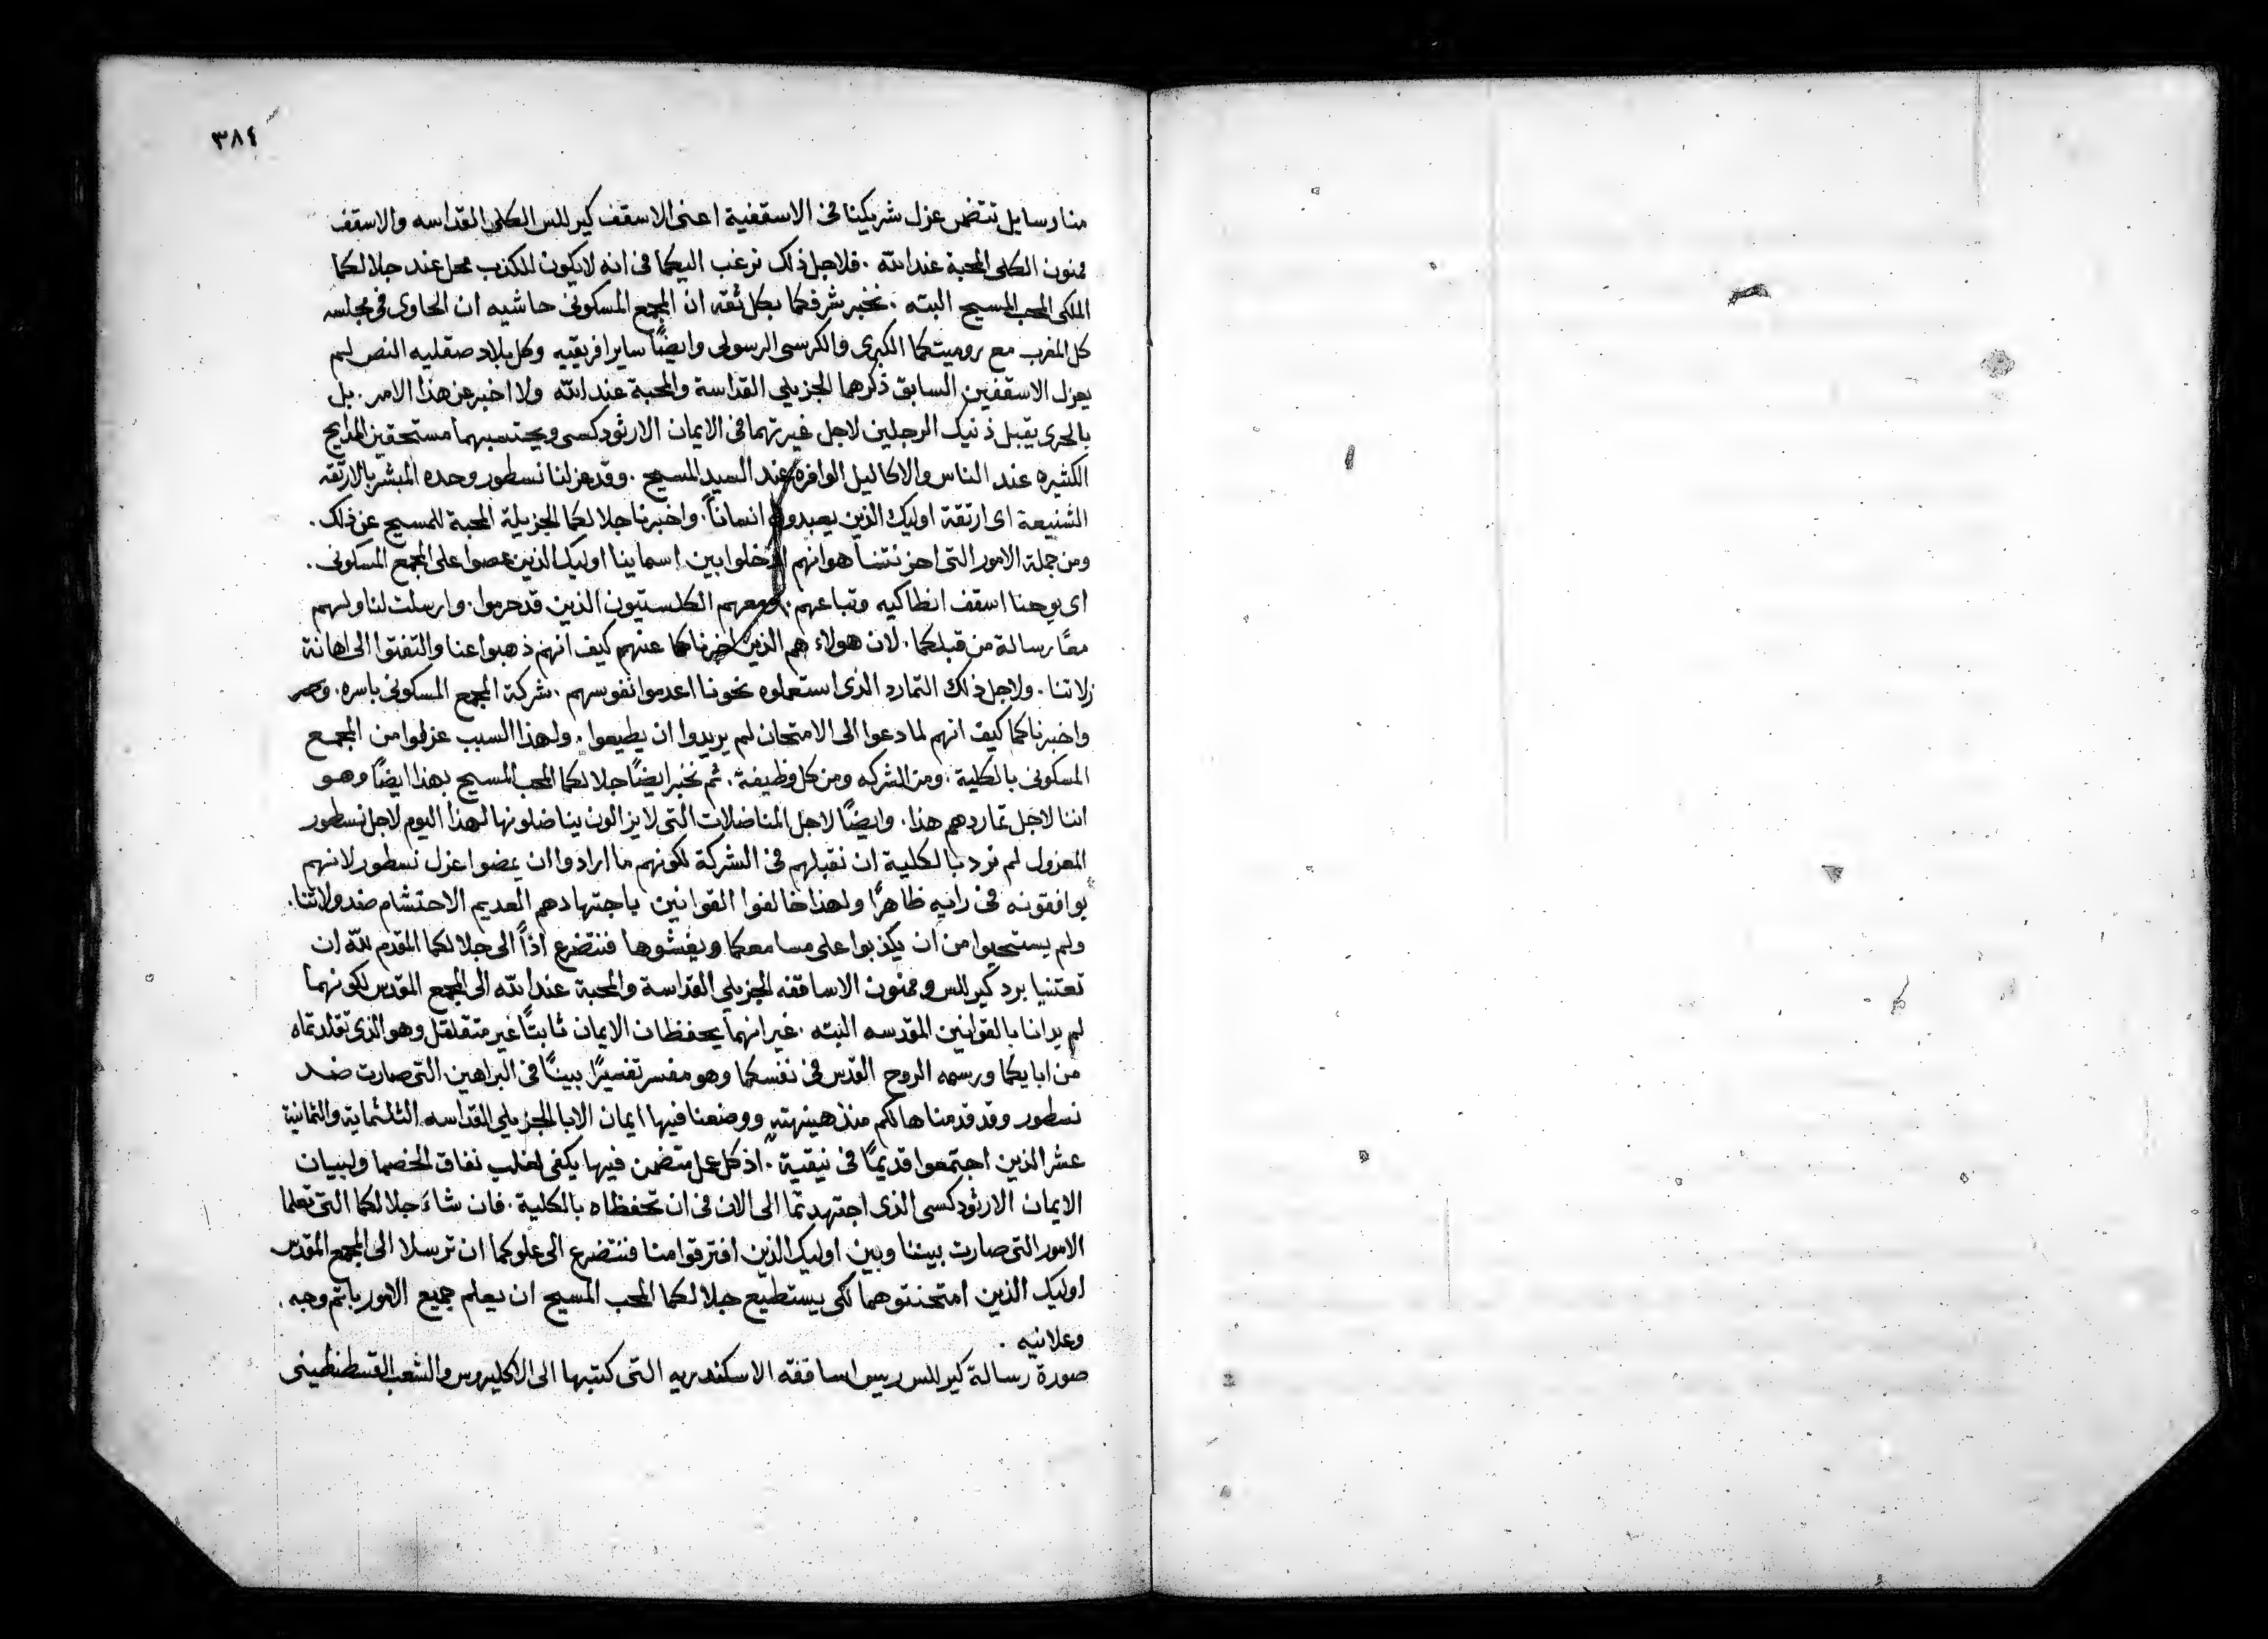 ٣٨٤
منا رسايل تتضمن عزل شريكينا في الاسقفية اعنى الاسقف كيرللس الكلى القداسه والاسقف
ممنون الكلى المحبة عند الله . فلاجل ذلك نرغب اليكما في انه لا يكون للكذب محل عند جلالكما
الملكى المحب المسيح البته . نخبر شرفكما بكل ثقه ان المجمع المسكونى حاشيه ان الحاوى في مجلسه
كل المغرب مع روميتكما الكبرى والكرسى الرسولى وايضًا ساير افريقيه وكل بلاد صقليه النص لم
يعزل الاسقفين السابق ذكرهما الجزيلي القداسة والمحبة عند الله ولا اخبر عن هذا الامر . بل
بالحرى يقبل ذنيك الرجلين لاجل غيرتهما في الايمان الارثودكسى ويحتسبهما مستحقين المدايح
الكثيره عند الناس والاكاليل الوافره عند السيد المسيح . وقد عزلنا نسطور وحده المبشر بالارتقه
الشنيعة اى ارتقة اوليك الذين يعبدون انسانًا . واخبرنا جلالكما الجزيلة المحبة للمسيح عن ذلك .
ومن جملة الامور التى احزنتنا هو انهم ادخلوا بين اسماينا اوليك الذين عصوا على المجمع المسكونى .
اى يوحنا اسقف انطاكيه وتباعهم . ومعهم الكلستيون الذين قد حرموا . وارسلت لنا ولهم
معًا رسالة من قبلكما . لان هولاء هم الذين اخبرناكما عنهم كيف انهم ذهبوا عنا والتفتوا الى اهانة
زلاتنا . ولاجل ذلك التمارد الذى استعملوه نحونا اعدموا نفوسهم . شركة المجمع المسكونى باسره .
واخبرناكما كيف انهم لما دعوا الى الامتحان لم يريدوا ان يطيعوا . ولهذا السبب عزلوا من المجمع
المسكونى بالكلية . ومن الشركه ومن كل وظيفة . ثم نخبر ايضًا جلالكما المحب المسيح بهذا ايضًا وهو
اننا لاجل تماردهم هذا . وايضًا لاجل المناضلات التى لا يزالون يناضلونها لهذا اليوم لاجل نسطور
المعزول لم نرد بالكلية ان نقبلهم في الشركة لكونهم ما ارادوا ان يمضوا عزل نسطور لانهم
يوافقونه في رايه ظاهرًا ولهذا خالفوا القوانين باجتهادهم العديم الاحتشام ضد ولاتنا .
ولم يستحيوا من ان يكذبوا على مسامعكما ويغشوها فنتضرع اذًا الى جلالكما المقدم لله ان
تعتنيا برد كيرللس وممنون الاساقفه الجزيلي القداسة والمحبة عند الله الى المجمع المقدس لكونهما
لم يدانا بالقوانين المقدسه البته . غير انهما يحفظان الايمان ثابتًا غير متقلقل وهو الذى تقلدتماه
من ابايكما ورسمه الروح القدس في نفسكما وهو مفسر تفسيرًا بينًا في البراهين التى صارت ضد
نسطور وقد قدمناها لكم منذ هنيهته ووضعنا فيها ايمان الابا الجزيلي القداسه الثلثماية والثمانية
عشر الذين اجتمعوا قديمًا في نيقية . اذ كل محل متضمن فيها يكفى لغلب نفاق الخصما ولبيان
الايمان الارثودكسى الذى اجتهدتما الى الان في ان تحفظاه بالكلية . فان شاء جلالكما التى تعلما
الامور التى صارت بيننا وبين اوليك الذين افترقوا منا فنتضرع الى علوكما ان ترسلا الى المجمع المقدس
اوليك الذين امتحنتوهما لكى يستطيع جلالكما المحب المسيح ان يعلم جميع الامور باتم وجه .
وعلانيه .
صورة رسالة كيرللس رييس اساقفه الاسكندريه التى كتبها الى الاكليروس والشعب القسطنطينى